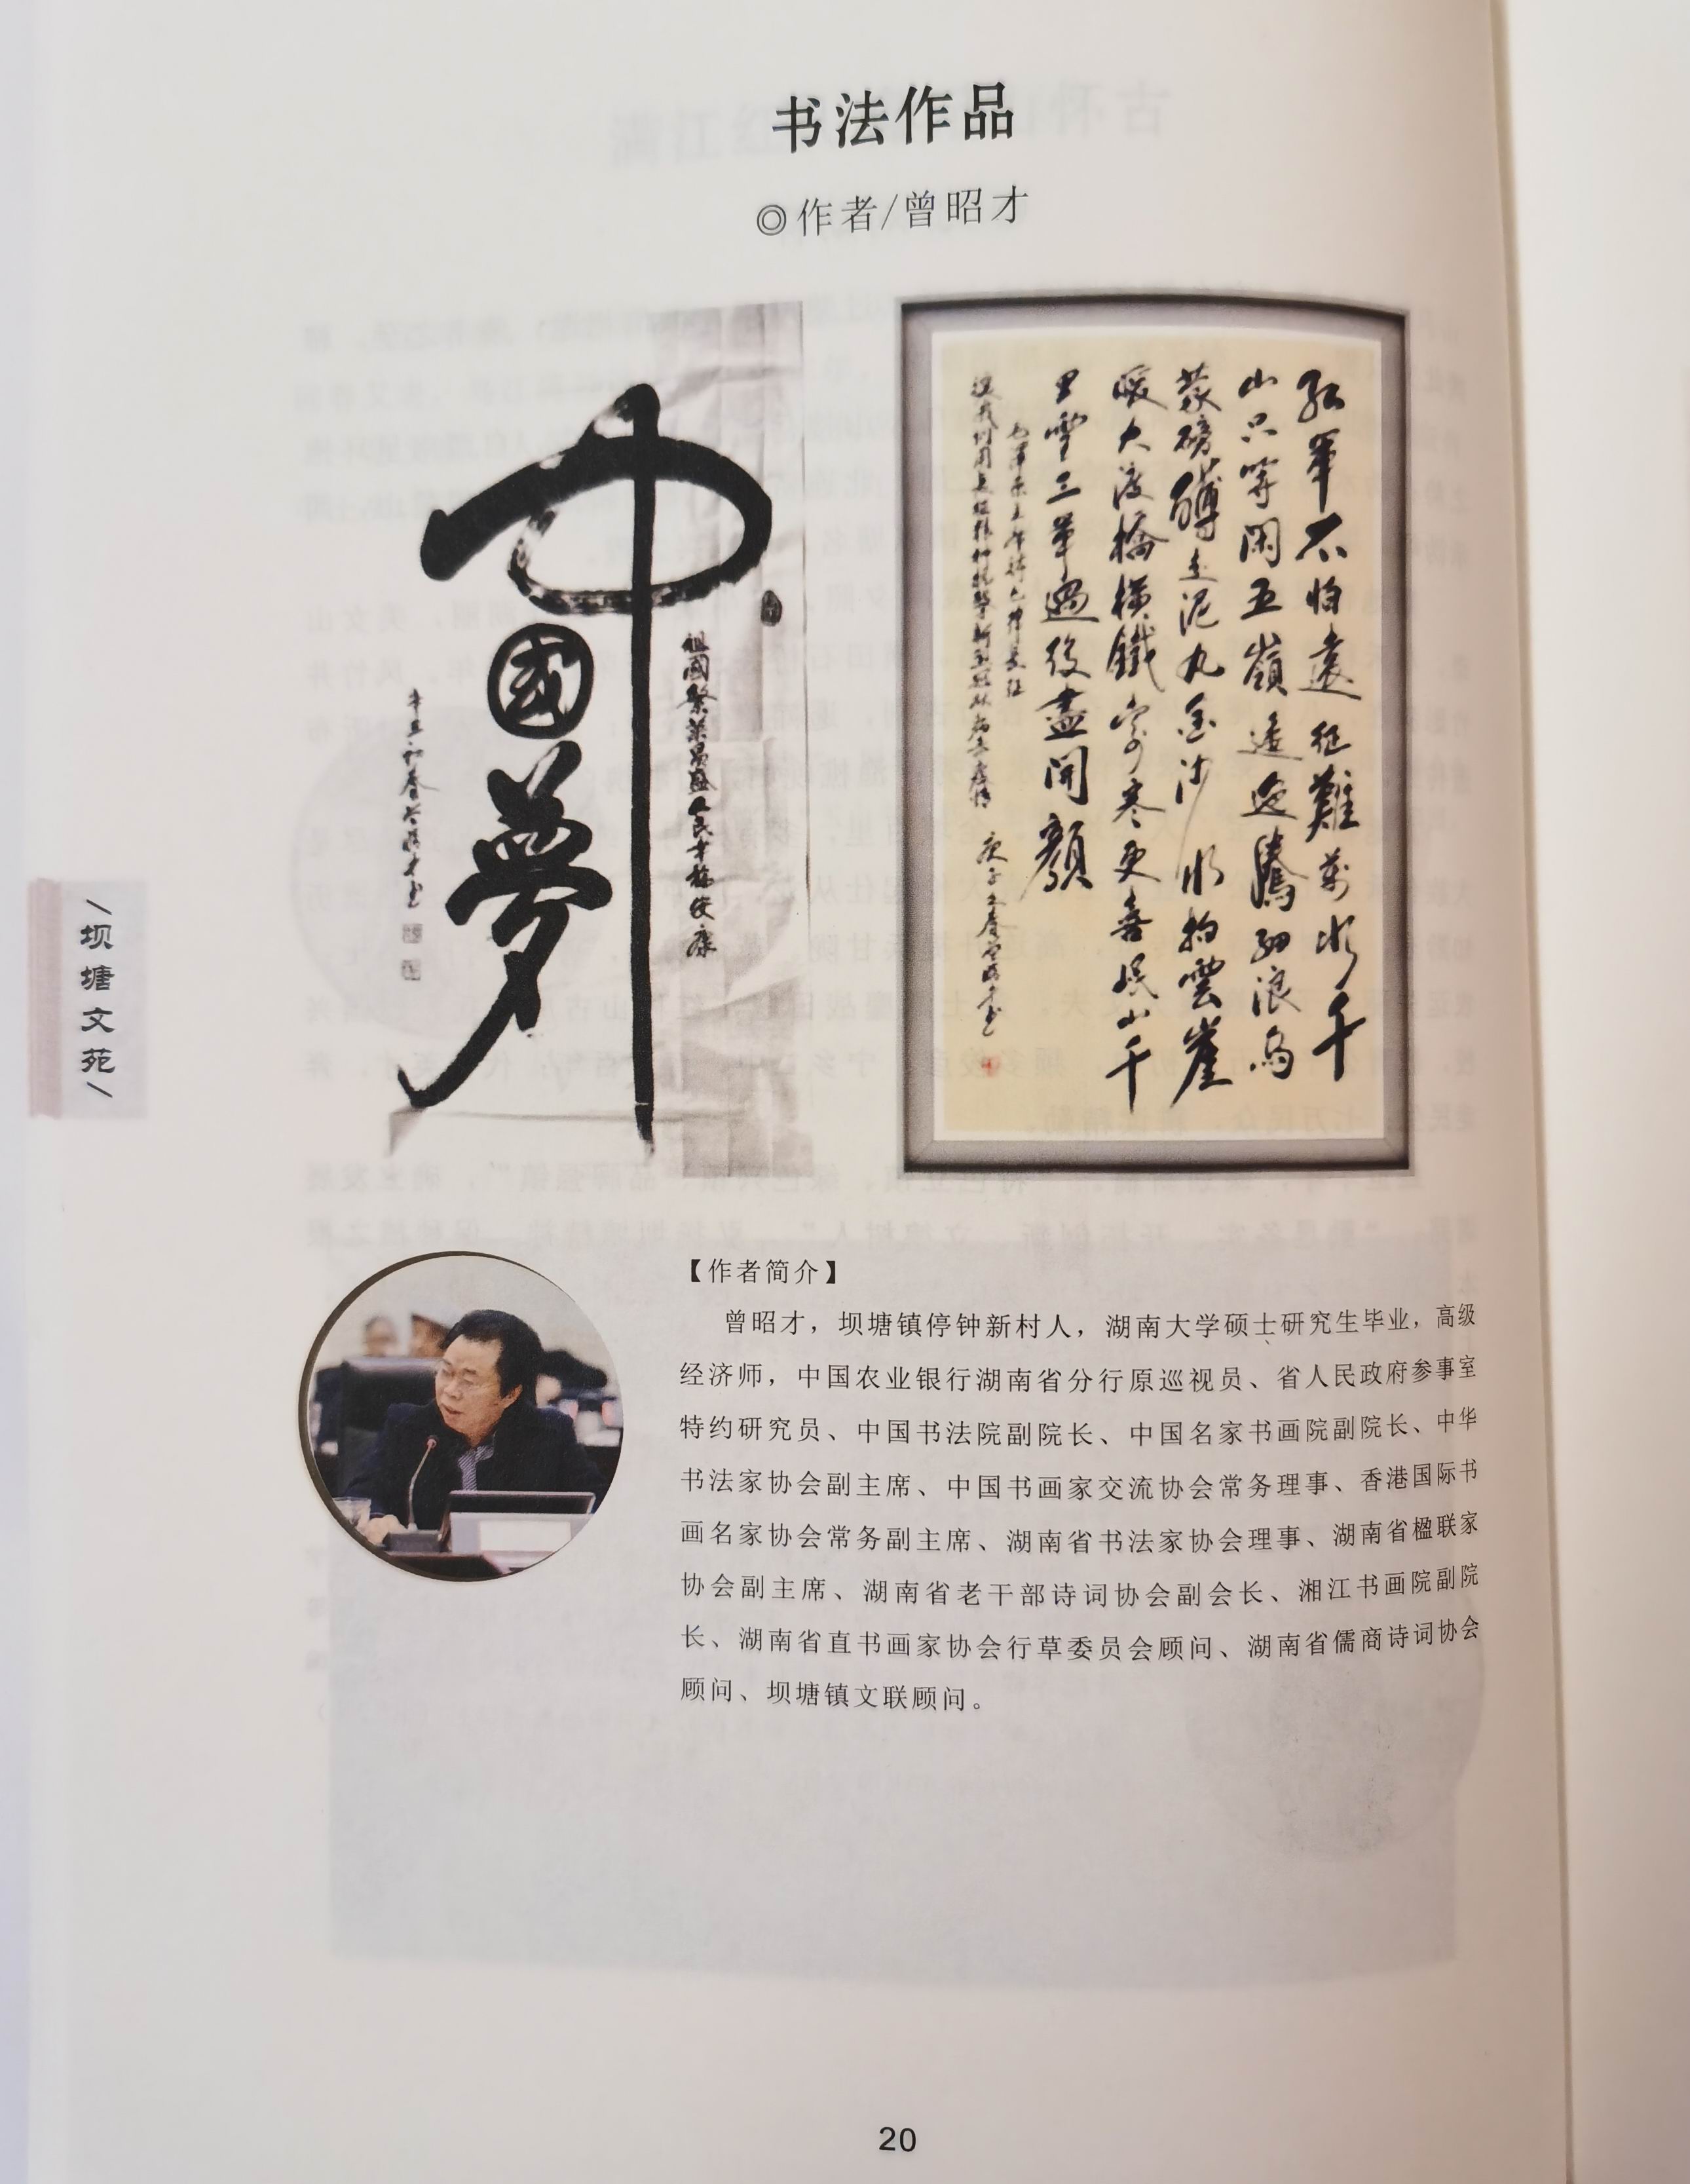 书法作品
◎作者/曾昭才
中國夢
祖國繁榮昌盛人民幸福安康
辛丑初春曾昭才书
红軍不怕遠征難萬水千
山只等閑五嶺逶迤騰細浪烏
蒙磅礴走泥丸金沙水拍雲崖
暖大渡橋横鐵索寒更喜岷山千
里雪三軍過後盡開顔
毛澤东主席詩七律長征
庚子之春曾昭才书
\坝塘文苑\
【作者简介】
曾昭才，坝塘镇停钟新村人，湖南大学硕士研究生毕业，高级
经济师，中国农业银行湖南省分行原巡视员、省人民政府参事室
特约研究员、中国书法院副院长、中国名家书画院副院长、中华
书法家协会副主席、中国书画家交流协会常务理事、香港国际书
画名家协会常务副主席、湖南省书法家协会理事、湖南省楹联家
协会副主席、湖南省老干部诗词协会副会长、湘江书画院副院
长、湖南省直书画家协会行草委员会顾问、湖南省儒商诗词协会
顾问、坝塘镇文联顾问。
20